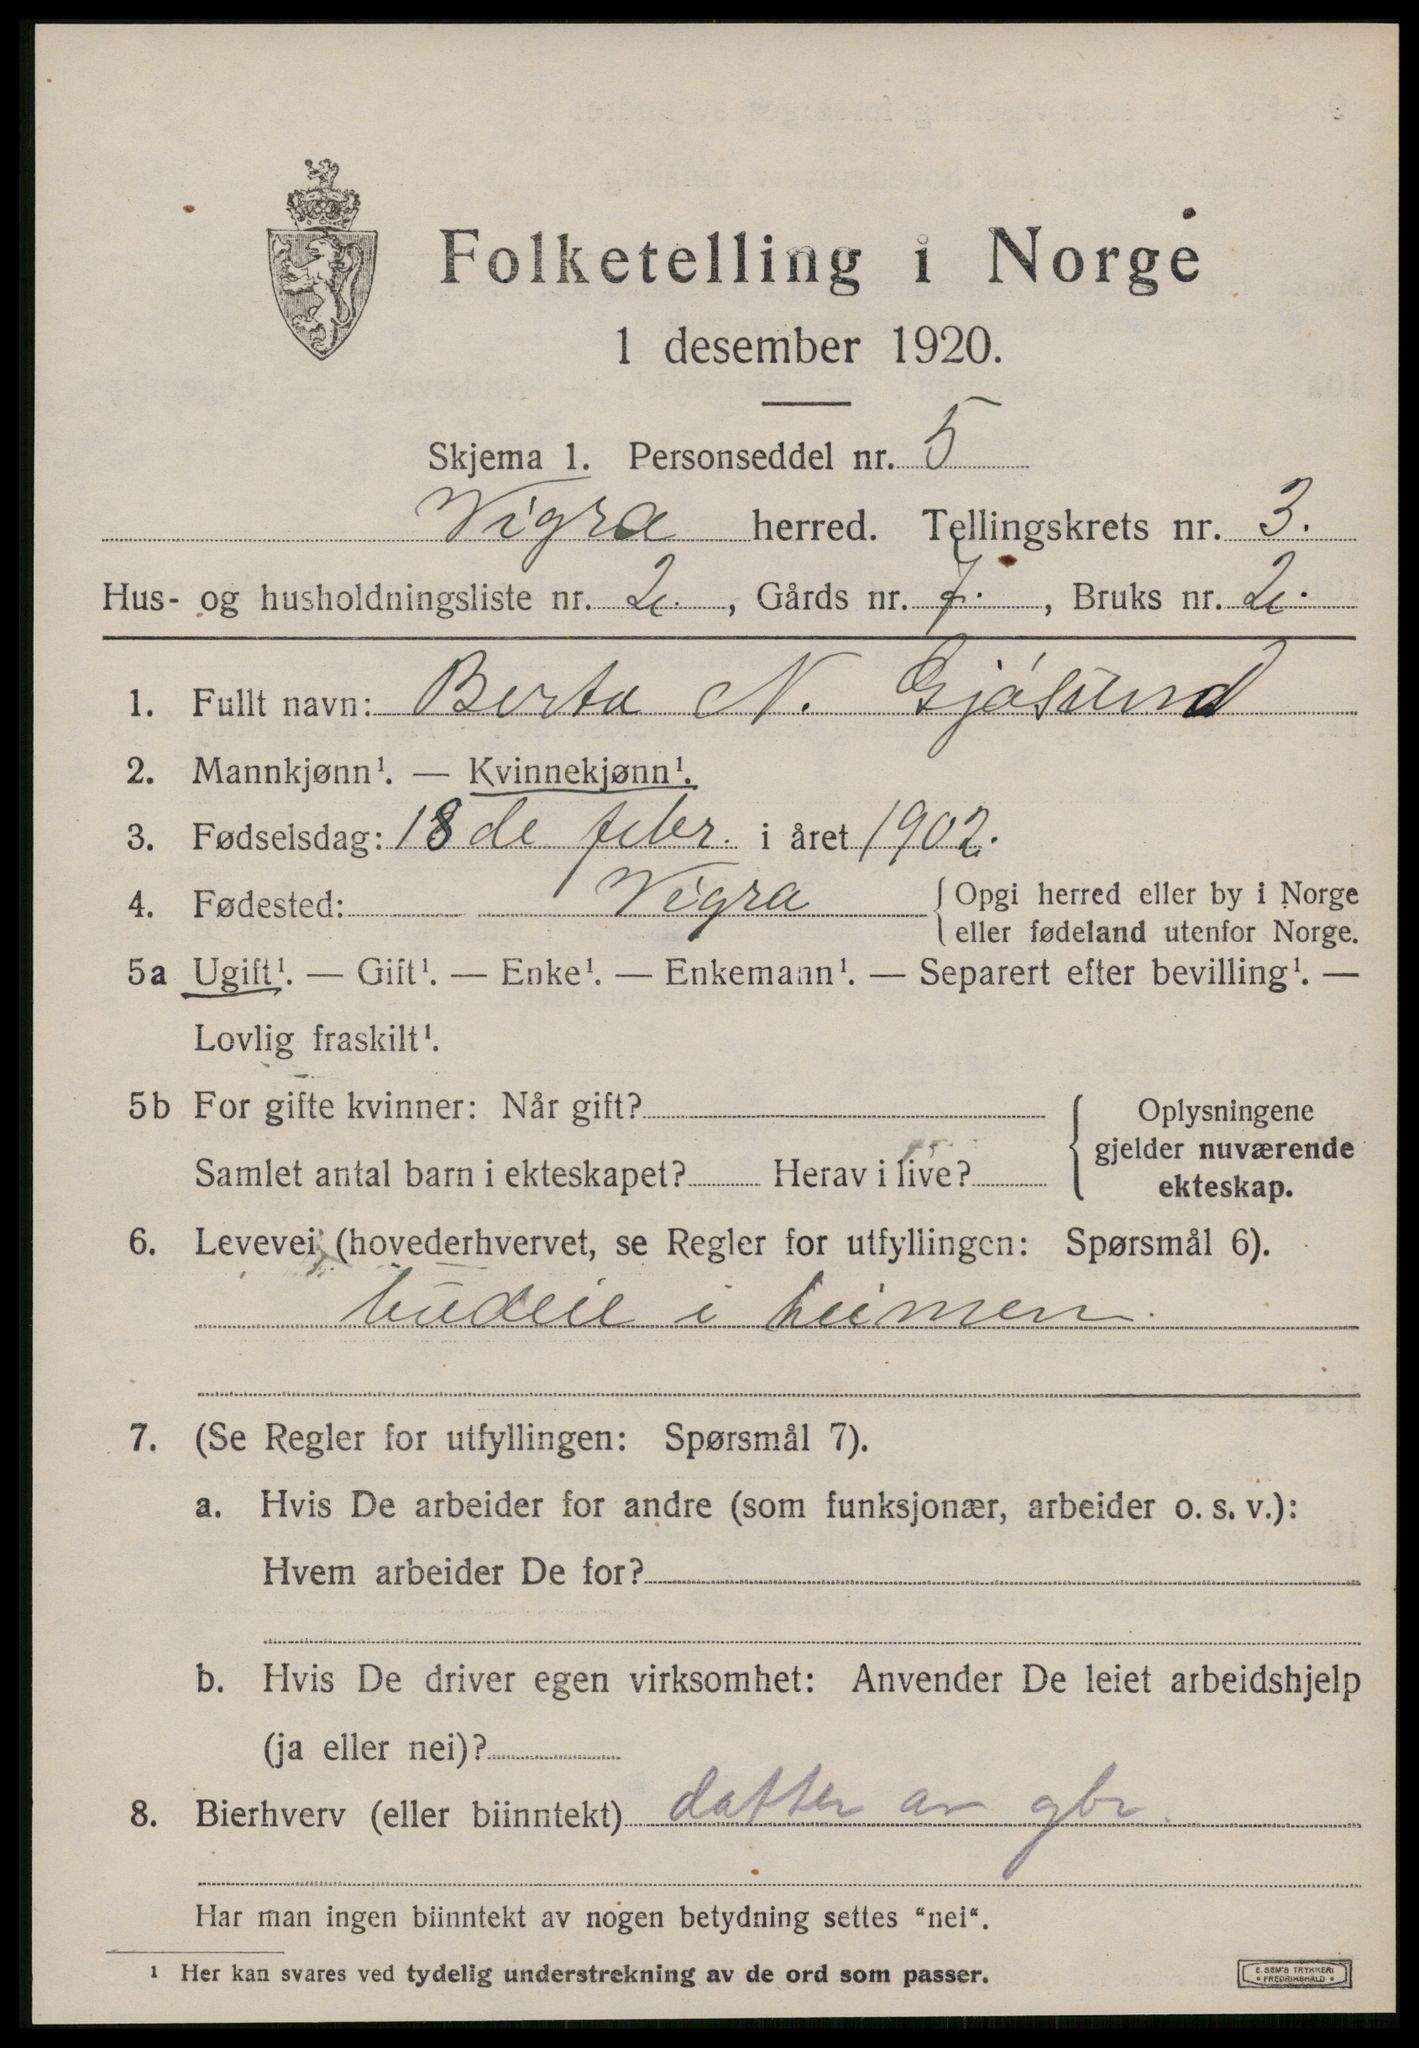 Folketelling i Norge
1 desember 1920.
Skjema 1. Personseddel nr. 5
Vigra herred. Tellingskrets nr. 3.
Hus- og husholdningsliste nr. 2., Gårds nr. 7., Bruks nr. 2.
1. Fullt navn: Berta N. Gjósund
2. Mannkjønn¹. — Kvinnekjønn¹.
3. Fødselsdag: 18de febr. i året 1902.
4. Fødested: Vigra { Opgi herred eller by i Norge
eller fødeland utenfor Norge.
5a Ugift¹. — Gift¹. — Enke¹. — Enkemann¹. — Separert efter bevilling¹. —
Lovlig fraskilt¹.
5b For gifte kvinner: Når gift?
Samlet antal barn i ekteskapet? Herav i live?
Oplysningene
gjelder nuværende
ekteskap.
6. Levevei (hovederhvervet, se Regler for utfyllingen: Spørsmål 6).
budeie i heimen.
7. (Se Regler for utfyllingen: Spørsmål 7).
a. Hvis De arbeider for andre (som funksjonær, arbeider o. s. v.):
Hvem arbeider De for?
b. Hvis De driver egen virksomhet: Anvender De leiet arbeidshjelp
(ja eller nei)?
8. Bierhverv (eller biinntekt) datter av gbr.
Har man ingen biinntekt av nogen betydning settes "nei".
¹ Her kan svares ved tydelig understrekning av de ord som passer.
E. SEM'S TRYKKERI
FREDRIKSHALD